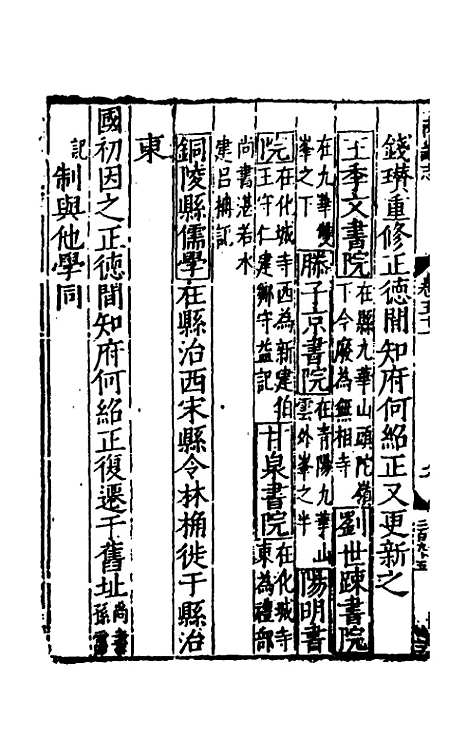 錢璸重修正徳間知府何紹正又更新之
王季文書院在縣九華山頭陀嶺下今廢為無相寺劉世疎書院
在九華雙峯之下滕子京書院在青陽九華山雲外峯之半陽明書
院在化城寺西為新建伯王守仁建鄒守益記甘泉書院在化城寺東為禮部
尚書湛若水建呂柟記
銅陵縣儒學在縣治西宋縣令林桷徙于縣治
東
國初因之正徳間知府何紹正復遷于舊址尚書孫
記制與他學同